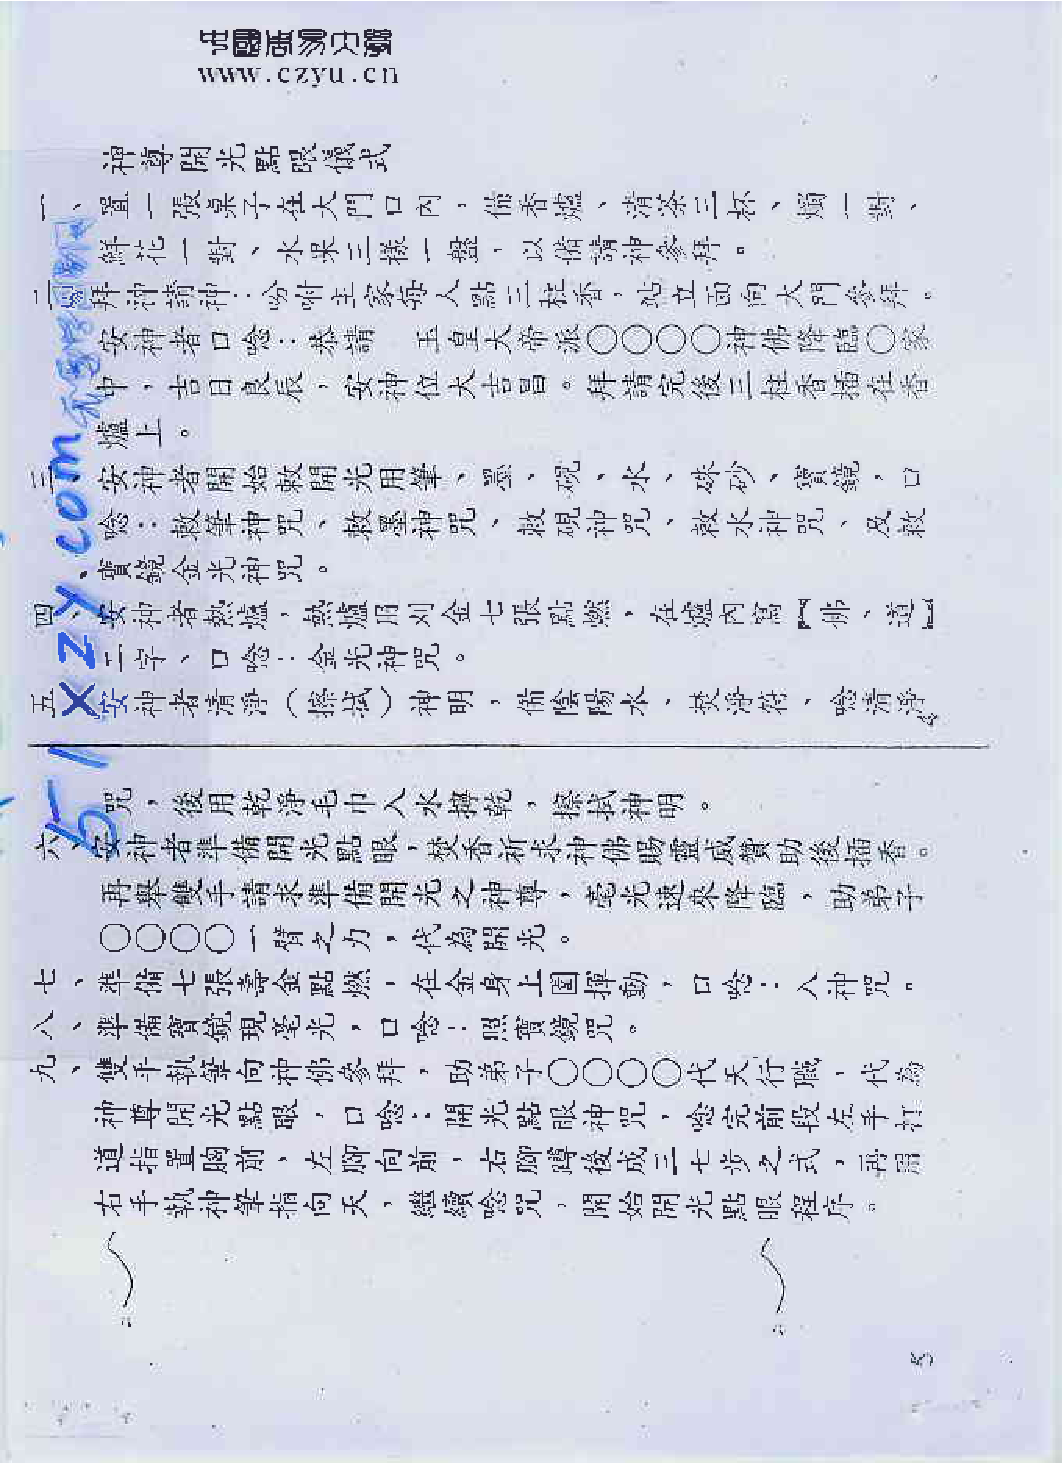 中國周易文學
www.czyu.cn
神尊開光點眼儀式
一、置一張桌子在大門口內。備香爐、清茶三杯、燭一對、
鮮花一對、水果三樣一盤，以備請神參拜。
二、拜神請神：吩咐主家每人點三柱香，站立面向大門參拜。
安神者口唸：恭請 玉皇大帝派〇〇〇〇神佛降臨〇家
中，吉日良辰，安神位大吉昌。拜請完後三柱香插在香
爐上。
三、安神者開始敕開光用筆、墨、硯、水、硃砂、寶鏡，口
唸：敕筆神咒、敕墨神咒、敕硯神咒、敕水神咒、及敕
寶鏡金光神咒。
四、安神者熱爐，熱爐用刈金七張點燃，在爐內寫『佛、道』
二字、口唸：金光神咒。
五、安神者清淨（擦拭）神明，備陰陽水，焚淨符，唸清淨
咒，後用乾淨毛巾入水擰乾，擦拭神明。
六、安神者準備開光點眼，焚香祈求神佛賜靈威贊助後插香。
再舉雙手請求準備開光之神尊，毫光速來降臨，助弟子
〇〇〇〇一臂之力，代為開光。
七、準備七張壽金點燃，在金身上圍揮動，口唸：入神咒。
八、準備寶鏡現毫光，口唸：照寶鏡咒。
九、雙手執筆向神佛參拜，助弟子〇〇〇〇代天行職，代為
神尊開光點眼，口唸：開光點眼神咒，唸完前段左手打
道指置胸前，左腳向前，右腳蹲後成三七步之式，再用
右手執神筆指向天，繼續唸咒，開始開光點眼程序。
5
51XZY.com